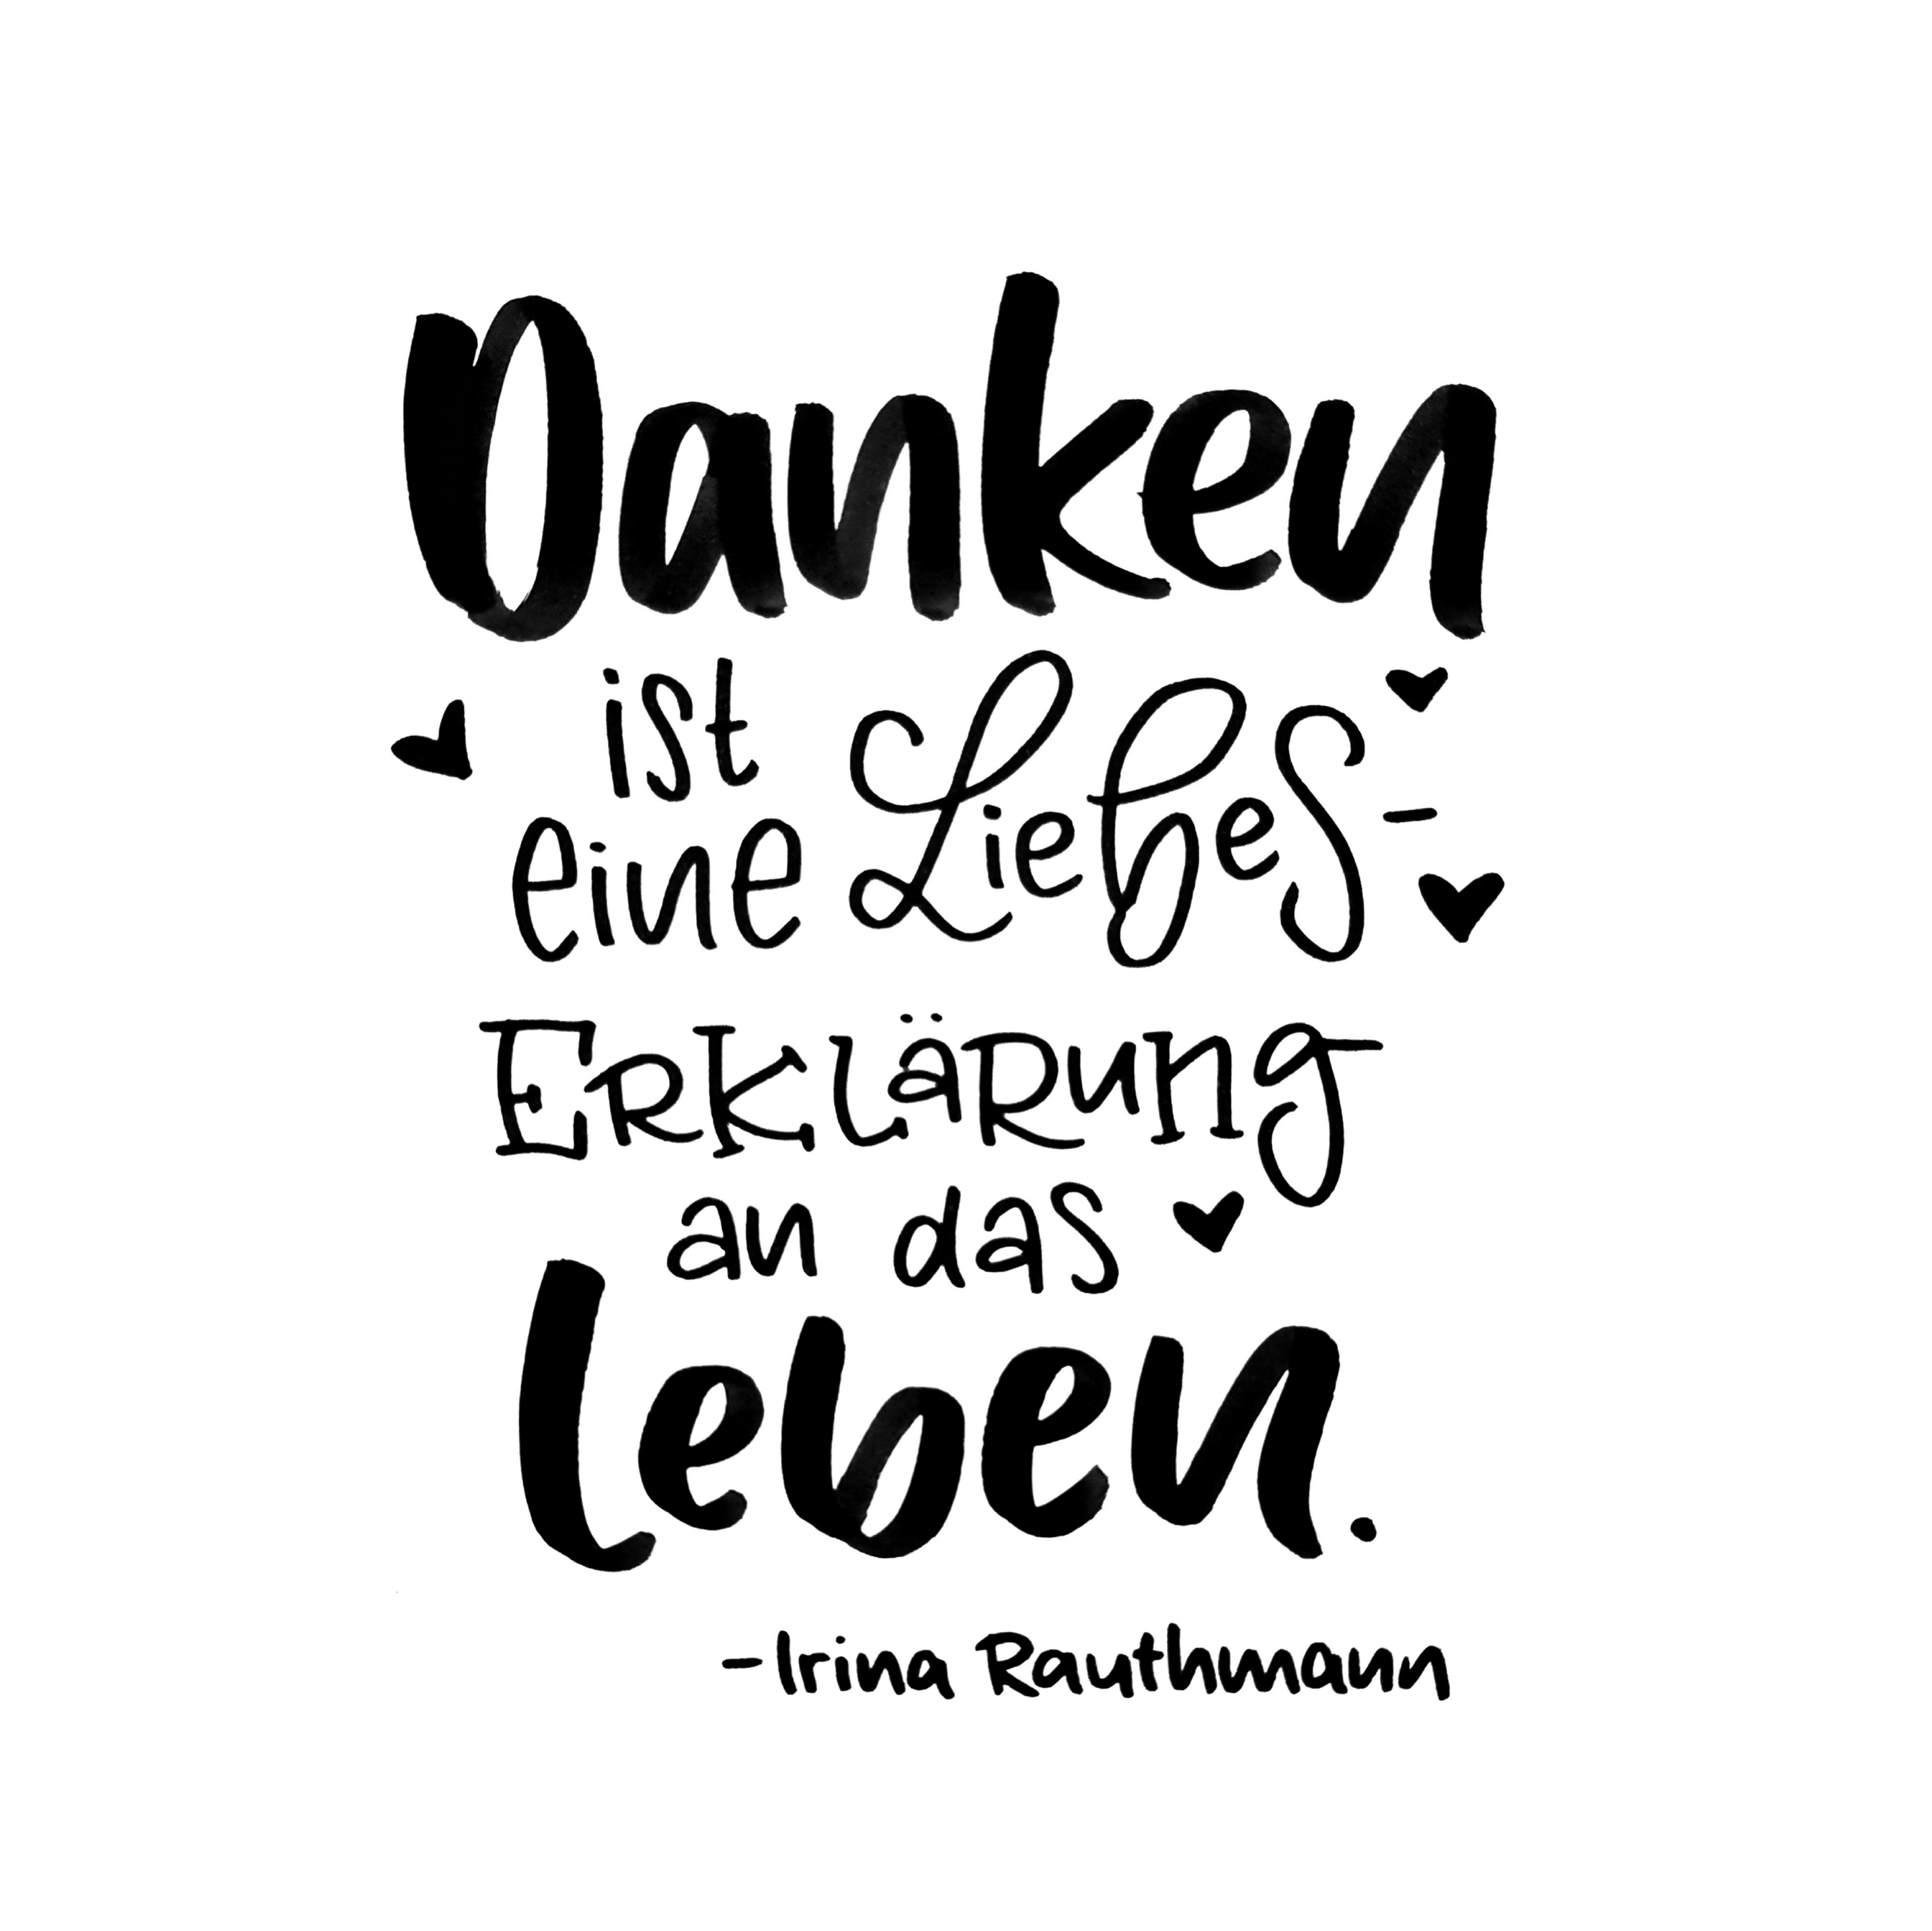 Danken
ist
eine Liebes-
Erklärung
an das
leben.
-Irina Rauthmann